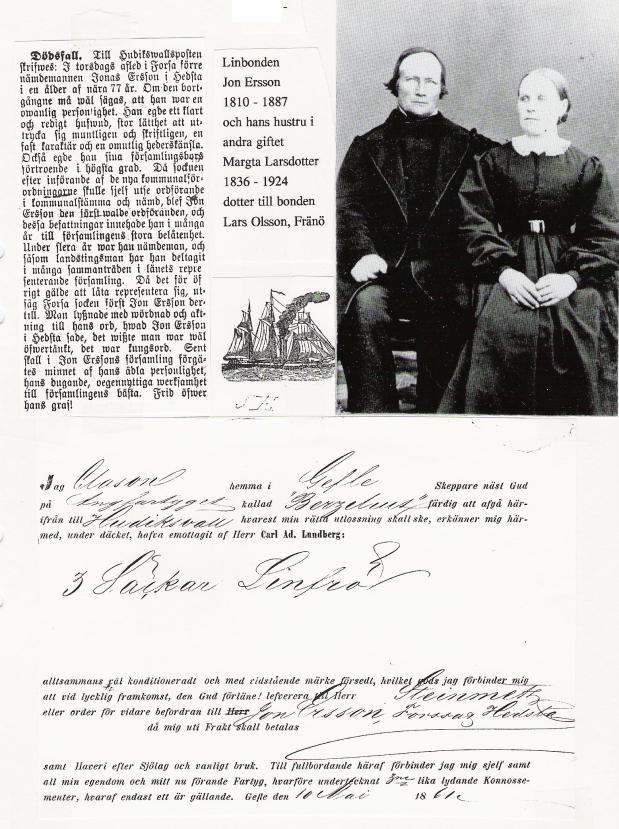 Dödsfall. Till Hudikswallsposten
skrifwes: I torsdags afled i Forsa förre
nämdemannen Jonas Ersson i Hedsta
i en ålder af nära 77 år. Om den bort-
gångne må wäl sägas, att han war en
owanlig personlighet. Han egde ett klart
och redigt hufwud, stor lätthet att ut-
trycka sig muntligen och skriftligen, en
fast karaktär och en omutlig hederskänsla.
Också egde han sina församlingsbors
förtroende i högsta grad. Då socknen
efter införande af de nya kommunalför-
ordningarne skulle sjelf utse ordförande
i kommunalstämma och nämd, blef Jon
Ersson den först walde ordföranden, och
dessa befattningar innehade han i många
år till församlingens stora belåtenhet.
Under flera år war han nämdeman, och
såsom landstingsman har han deltagit
i många sammanträden i länets repre
senterande församling. Då det för öf
rigt gälde att låta representera sig, ut-
såg Forsa socken först Jon Ersson der-
till. Man lyßnade med wördnad och akt-
ning till hans ord, hwad Jon Ersson
i Hedsta sade, det wißte man war wäl
öfwertänkt, det war kungsord. Sent
skall i Jon Erssons församling förgä-
tes minnet af hans ädla personlighet,
hans dugande, oegennyttiga werksamhet
till församlingens bästa. Frid öfwer
hans graf!
Linbonden
Jon Ersson
1810 - 1887
och hans hustru i
andra giftet
Margta Larsdotter
1836 - 1924
dotter till bonden
Lars Olsson, Fränö
Jag Clason hemma i Gefle Skeppare näst Gud
på Ångfartyget kallad "Berzelius" färdig att afgå här-
ifrån till Hudiksvall hvarest min rätta utlossning skall ske, erkänner mig här-
med, under däcket, hafva emottagit af Herr Carl Ad. Lundberg:
3 Säckar Linfrö
alltsammans väl konditioneradt och med vidstående märke försedt, hvilket gods jag förbinder mig
att vid lycklig framkomst, den Gud förläne! lefverera till Herr Steinmetz
eller order för vidare befordran till Herr Jon Ersson, Forssa, Hedsta
då mig uti Frakt skall betalas
samt Haveri efter Sjölag och vanligt bruk. Till fullbordande häraf förbinder jag mig sjelf samt
all min egendom och mitt nu förande Fartyg, hvarföre undertecknat 3ne lika lydande Konnosse-
menter, hvaraf endast ett är gällande. Gefle den 10 Mai 1861